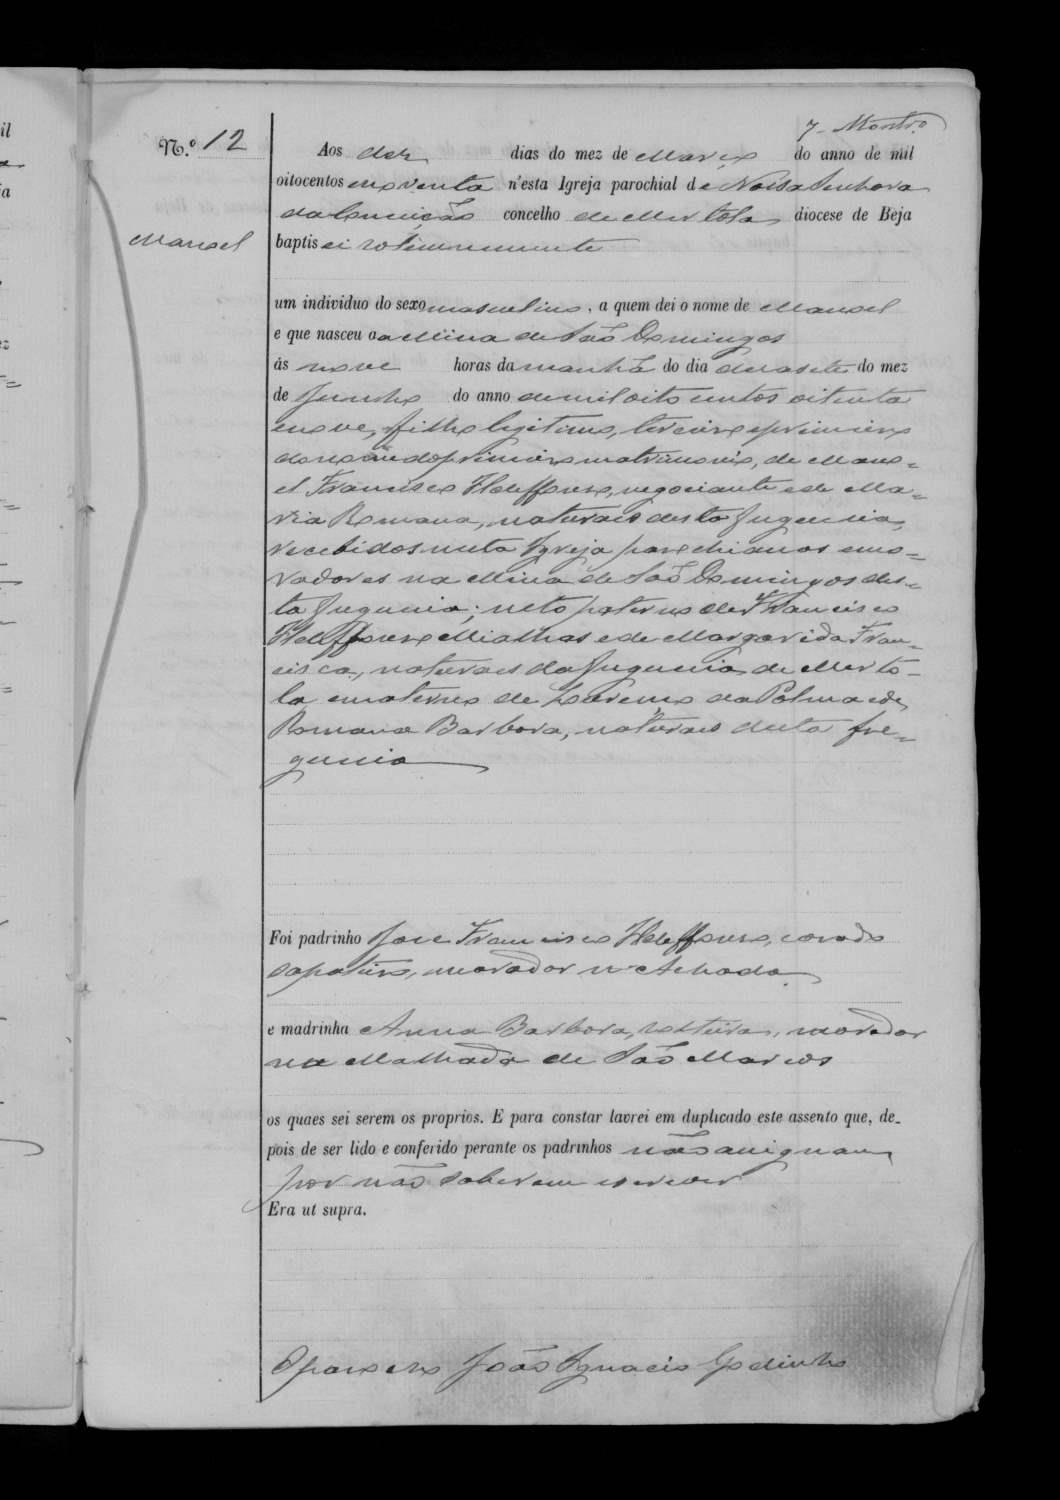 7- Montr.o
N.º 12
Aos dez dias do mez de Março do anno de mil
oitocentos e noventa n'esta Igreja parochial de Nossa Senhora
da Conceição concelho de Mertola, diocese de Beja
Manoel
baptisei solemnemente
um individuo do sexo masculino, a quem dei o nome de Manoel
e que nasceu na Mina de São Domingos
ás nove horas da manhã do dia dezasete do mez
de Junho do anno de mil oito centos oitenta
e nove, filho legitimo, terceiro e primeiro
do nome do primeiro matrimonio, de Mano=
el Francisco Ildeffonso, negociante e de Ma=
ria Romana, naturais desta freguesia,
recebidos nesta Igreja parochianos e mo=
radores na Mina de São Domingos des=
ta freguesia; neto paterno de Francisco
Ildeffonso Mialhas e de Margarida Fran=
cisca, naturaes da freguesia de Merto-
la e materno de Lourenço da Palma e de
Romana Barbora, naturaes desta fre=
guesia
Foi padrinho José Francisco Ildeffonso, casado
sapateiro, morador n'Achada
e madrinha Anna Barbora, solteira, morador
na Malhada de São Marcos
os quaes sei serem os proprios. E para constar lavrei em duplicado este assento que, de-
pois de ser lido e conferido perante os padrinhos não assignam
por não saberem escrever
Era ut supra.
O parocho João Ignacio Godinho